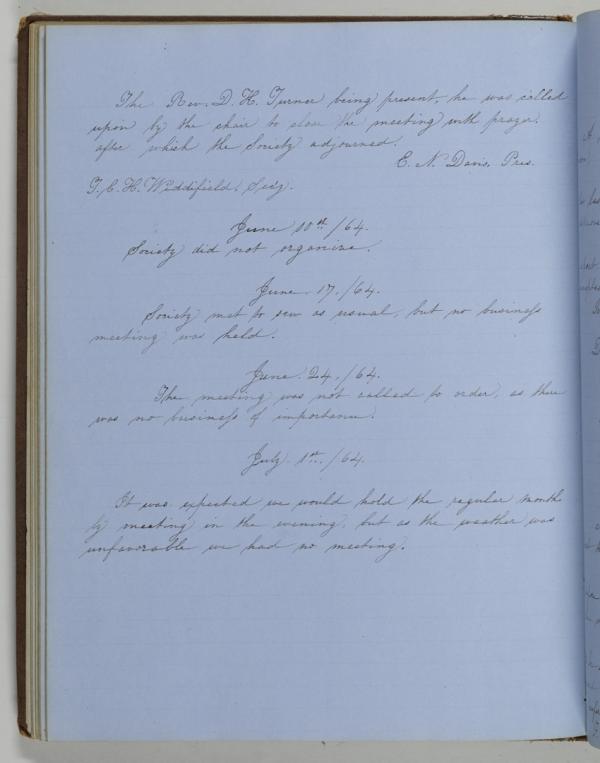 The Rev. D. H. Turner being present, he was called
upon by the chair to close the meeting with prayer,
after which the Society adjourned.
E. N. Davis, Pres.
T. C. H. Widdifield, Secy.
June 10th /64.
Society did not organize.
June. 17. /64.
Society met to sew as usual, but no business
meeting was held.
June. 24. /64.
The meeting was not called to order, as there
was no business of importance.
July. 1st. /64.
It was expected we would hold the regular month
ly meeting in the evening, but as the weather was
unfavorable we had no meeting.